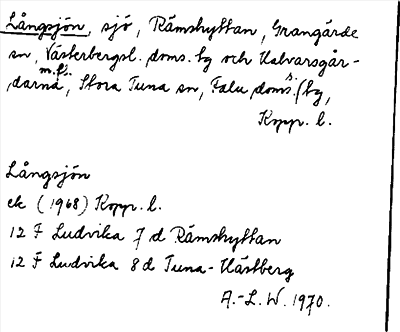 Långsjön, sjö, Rämshyttan, Grangärde
sn, Västerbergsl. doms. tg och Halvarsgår-
darna m.fl., Stora Tuna sn, Falu doms. s. tg,
Kopp. l.
Långsjön
ek (1968) Kopp. l.
12 F Ludvika 7 d Rämshyttan
12 F Ludvika 8 d Tuna-Hästberg
A.-L. W. 1970.